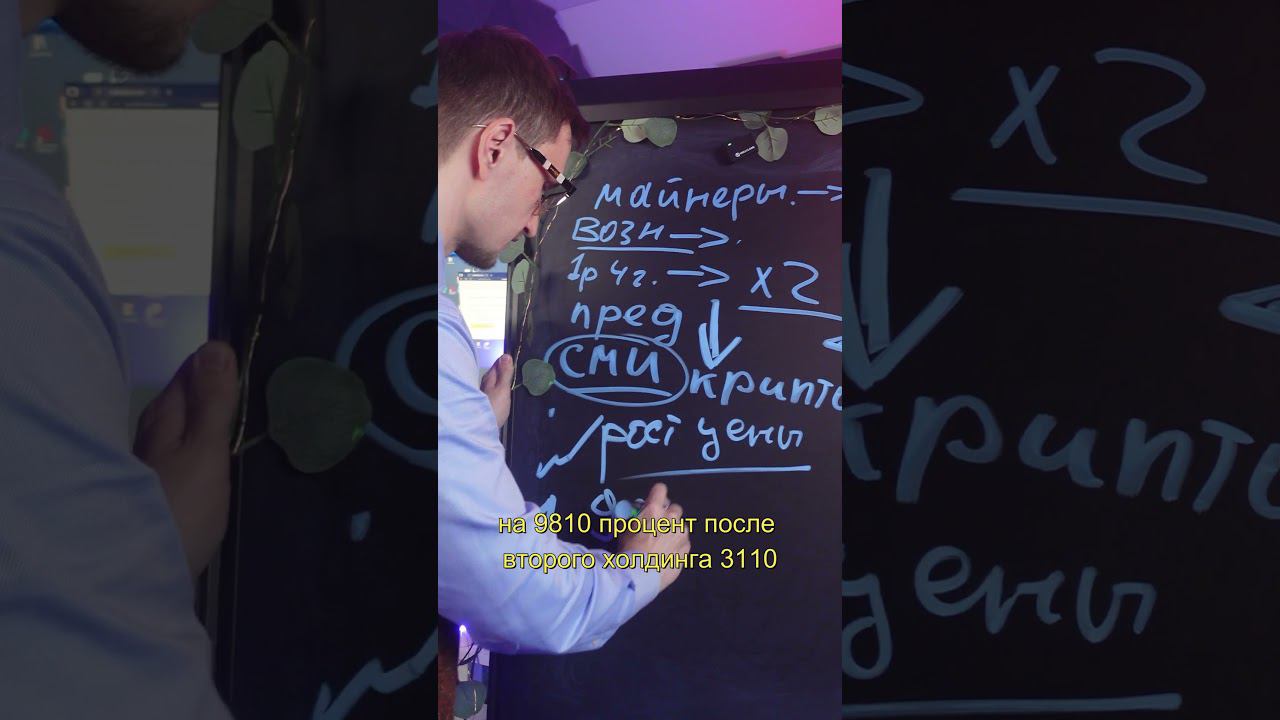 майнеры. →
ВОЗН →.
1р 4г. → x2
пред
СМИ
крипто
рост цены
на 9810 процент после
второго холдинга 3110